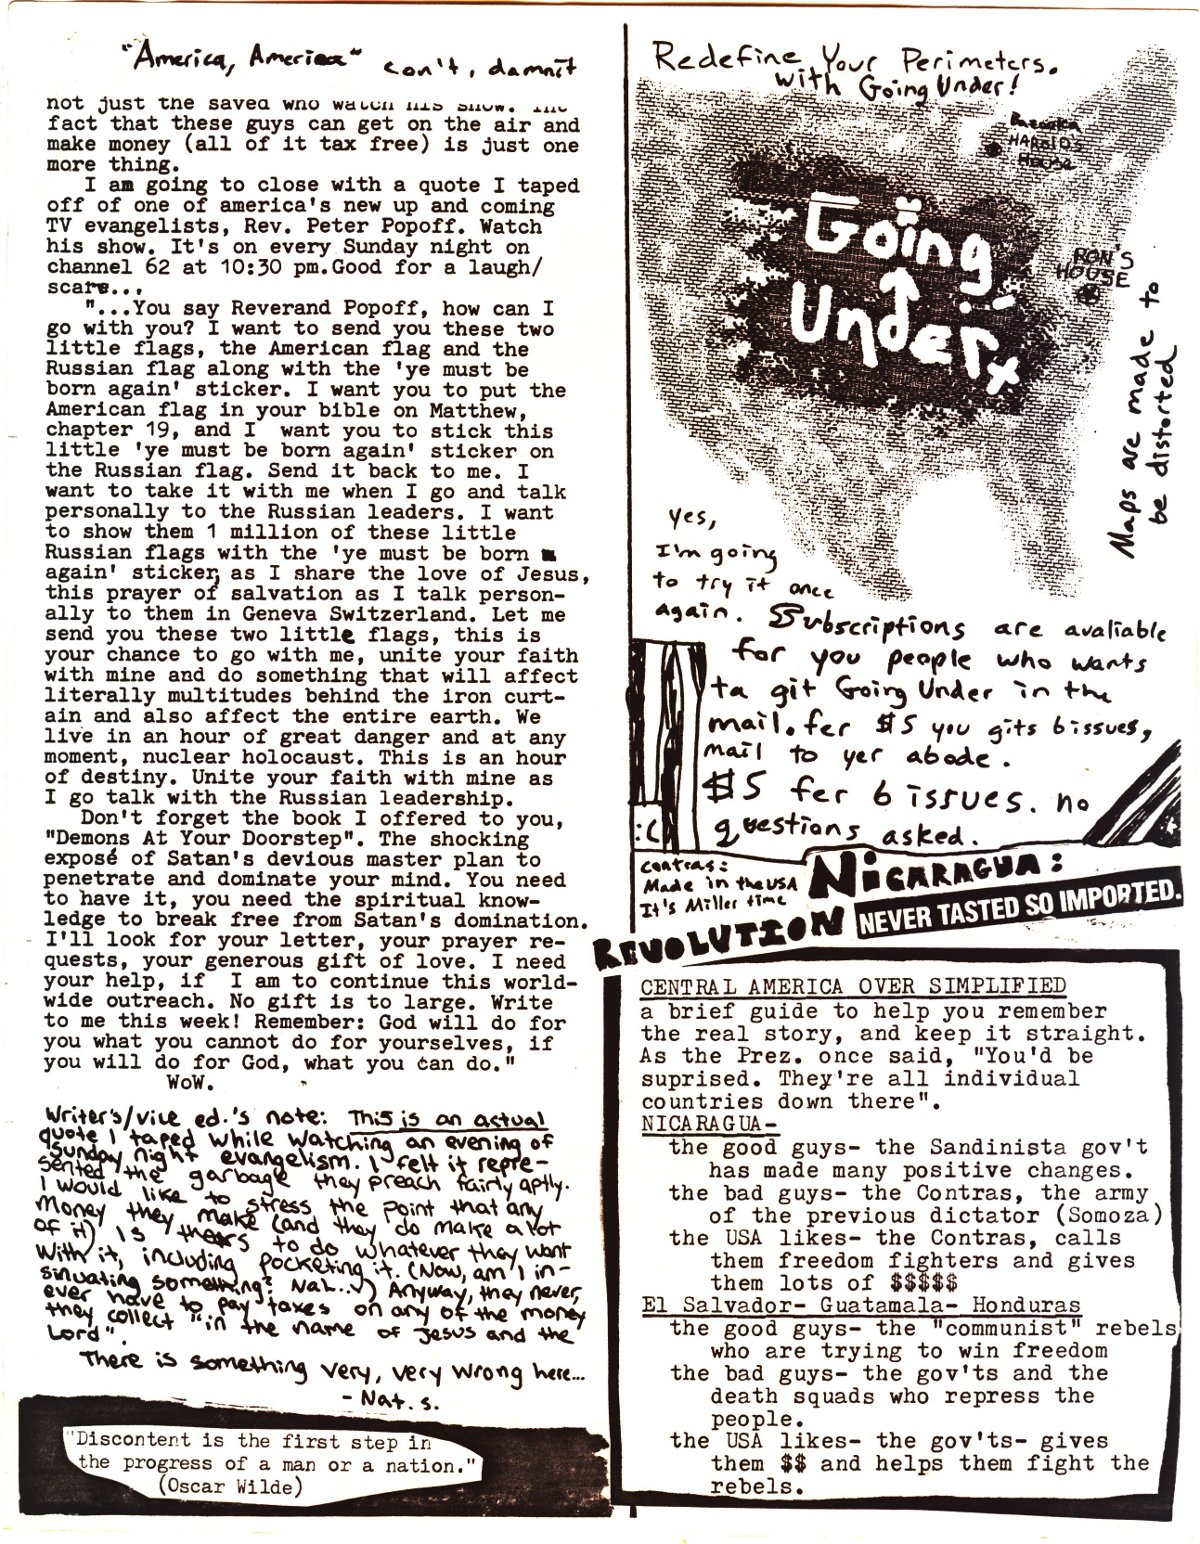 "America, America" con't, damnit
not just the saved who watch his show. The
fact that these guys can get on the air and
make money (all of it tax free) is just one
more thing.
I am going to close with a quote I taped
off of one of america's new up and coming
TV evangelists, Rev. Peter Popoff. Watch
his show. It's on every Sunday night on
channel 62 at 10:30 pm.Good for a laugh/
scare...
"...You say Reverand Popoff, how can I
go with you? I want to send you these two
little flags, the American flag and the
Russian flag along with the 'ye must be
born again' sticker. I want you to put the
American flag in your bible on Matthew,
chapter 19, and I want you to stick this
little 'ye must be born again' sticker on
the Russian flag. Send it back to me. I
want to take it with me when I go and talk
personally to the Russian leaders. I want
to show them 1 million of these little
Russian flags with the 'ye must be born
again' sticker, as I share the love of Jesus,
this prayer of salvation as I talk person-
ally to them in Geneva Switzerland. Let me
send you these two little flags, this is
your chance to go with me, unite your faith
with mine and do something that will affect
literally multitudes behind the iron curt-
ain and also affect the entire earth. We
live in an hour of great danger and at any
moment, nuclear holocaust. This is an hour
of destiny. Unite your faith with mine as
I go talk with the Russian leadership.
Don't forget the book I offered to you,
"Demons At Your Doorstep". The shocking
exposé of Satan's devious master plan to
penetrate and dominate your mind. You need
to have it, you need the spiritual know-
ledge to break free from Satan's domination.
I'll look for your letter, your prayer re-
quests, your generous gift of love. I need
your help, if I am to continue this world-
wide outreach. No gift is to large. Write
to me this week! Remember: God will do for
you what you cannot do for yourselves, if
you will do for God, what you can do."
WoW.
Writer's/vice ed.'s note: This is an actual
quote I taped while watching an evening of
Sunday night evangelism. I felt it repre-
sented the garbage they preach fairly aptly.
I would like to stress the point that any
money they make (and they do make a lot
of it) is theirs to do whatever they want
with it, including pocketing it. (Now, am I in-
sinuating something? Nah...) Anyway, they never,
ever have to pay taxes on any of the money
they collect "in the name of Jesus and the
Lord".
There is something very, very wrong here...
- Nat. s.
"Discontent is the first step in
the progress of a man or a nation."
(Oscar Wilde)
Redefine Your Perimeters.
with Going Under!
HAROLD'S
House
Going
Under
RON'S
HOUSE
Maps are made to
be distorted
Yes,
I'm going
to try it once
again. Subscriptions are avaliable
for you people who wants
ta git Going Under in the
mail. fer $5 you gits 6 issues,
mail to yer abode.
$5 fer 6 issues. no
questions asked.
:(
contras:
Made in the USA
It's Miller time
NICARAGUA:
REVOLUTION NEVER TASTED SO IMPORTED.
CENTRAL AMERICA OVER SIMPLIFIED
a brief guide to help you remember
the real story, and keep it straight.
As the Prez. once said, "You'd be
suprised. They're all individual
countries down there".
NICARAGUA-
the good guys- the Sandinista gov't
has made many positive changes.
the bad guys- the Contras, the army
of the previous dictator (Somoza)
the USA likes- the Contras, calls
them freedom fighters and gives
them lots of $$$$$
El Salvador- Guatamala- Honduras
the good guys- the "communist" rebels
who are trying to win freedom
the bad guys- the gov'ts and the
death squads who repress the
people.
the USA likes- the gov'ts- gives
them $$ and helps them fight the
rebels.